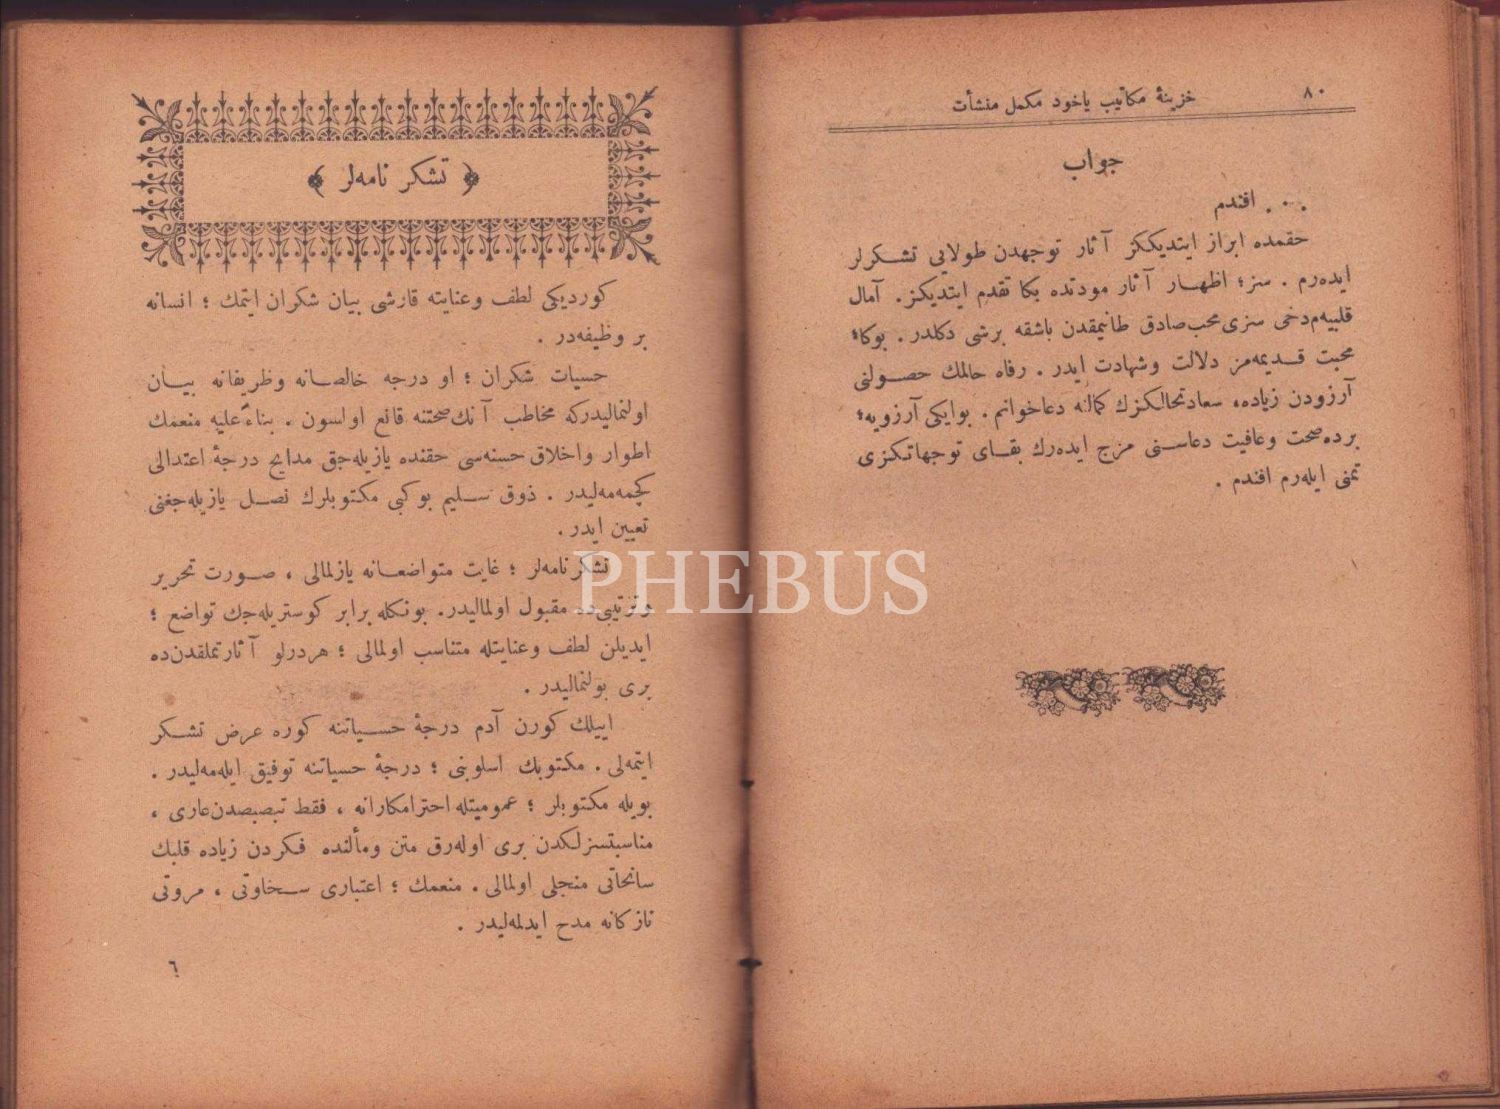 ٨٠
خزينهٔ مكاتيب ياخود مكمل منشأت
جواب
. . . افندم
حقمده ابراز ايتديككز آثار توجهدن طولايى تشكرلر
ايده‌رم . سز ؛ اظهار آثار مودتده بكا تقدم ايتديكز . آمال
قلبيه‌م‌دخى سزى محب‌صادق طانيمقدن باشقه برشى دكلدر . بوكا ؛
محبت قديمه‌مز دلالت وشهادت ايدر . رفاه حالمك حصولنى
آرزودن زياده ، سعادتحالكزك كمالنه دعاخوانم . بوايكى آرزويه ؛
برده‌صحت وعافيت دعاسنى مزج ايده‌رك بقاى توجهاتكزى
تمنى ايله‌رم افندم .
﴿ تشكر نامه‌لر ﴾
كورديكى لطف وعنايته قارشى بيان شكران ايتمك ؛ انسانه
بر وظيفه‌در .
حسيات شكران ؛ او درجه خالصانه وظريفانه بيان
اولنماليدركه مخاطب آنك‌صحتنه قانع اولسون . بناءً عليه منعمك
اطوار واخلاق حسنه‌سى حقنده يازيله‌جق مدايح درجهٔ اعتدالى
كچمه‌مه‌ليدر . ذوق سليم بوكبى مكتوبلرك نصل يازيله‌جغنى
تعيين ايدر .
تشكرنامه‌لر ؛ غايت متواضعانه يازلمالى ، صورت تحرير
وترتيبى‌ده مقبول اولماليدر. بونكله برابر كوستريله‌جك تواضع ؛
ايديلن لطف وعنايتله متناسب اولمالى ؛ هردرلو آثارتملقدن‌ده
برى بولنماليدر .
اييلك كورن آدم درجهٔ حسياتنه كوره عرض تشكر
ايتمه‌لى . مكتوبك اسلوبنى ؛ درجهٔ حسياتنه توفيق ايله‌مه‌ليدر .
بويله مكتوبلر ؛ عموميتله احترامكارانه ، فقط تبصبصدن‌عارى ،
مناسبتسزلكدن برى اوله‌رق متن ومألنده فكردن زياده قلبك
سانحاتى منجلى اولمالى . منعمك ؛ اعتبارى سخاوتى ، مروتى
نازكانه مدح ايدلمه‌ليدر .
٦
PHEBUS